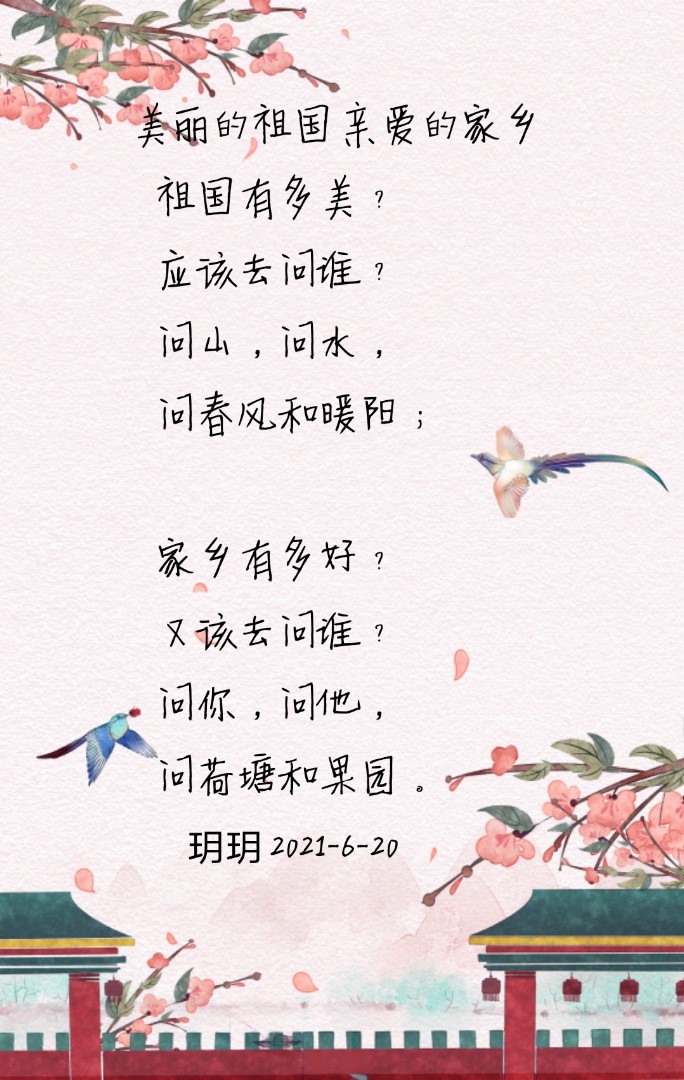 美丽的祖国亲爱的家乡
祖国有多美?
应该去问谁?
问山,问水,
问春风和暖阳;
家乡有多好?
又该去问谁?
问你,问他,
问荷塘和果园。
玥玥2021-6-20